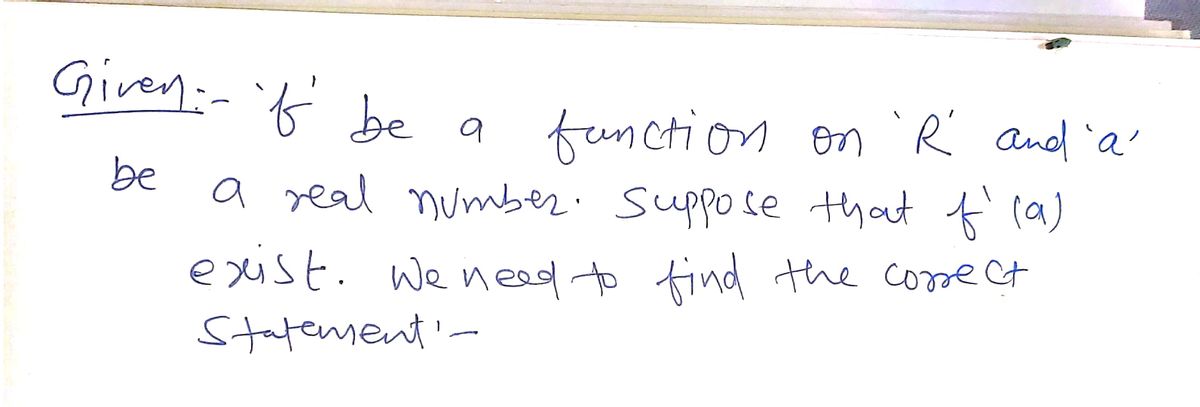 Given:- 'f' be a function on 'R' and 'a'
be a real number. Suppose that f'(a)
exist. We need to find the correct
Statement:-